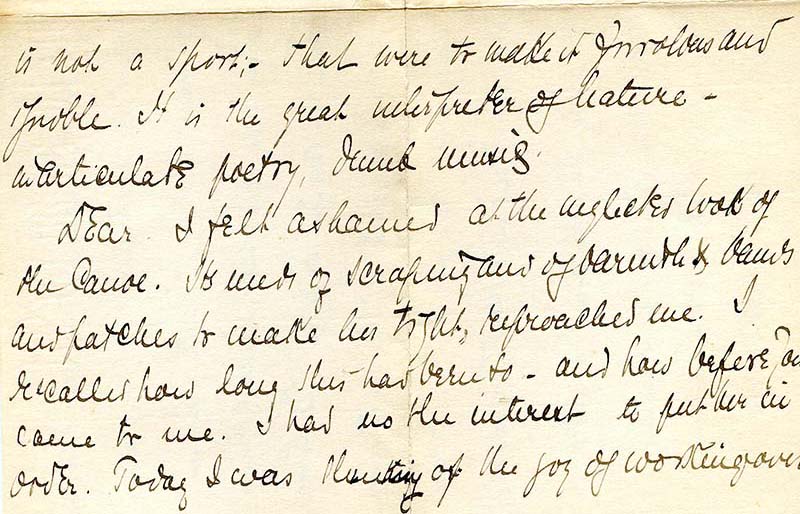 is not a sport; - that were to make it frivolous and
ignoble. It is the great interpreter of nature -
inarticulate poetry, dumb music.
Dear. I felt ashamed at the neglected look of
the Canoe. Its needs of scraping and of varnish & bands
and patches to make her tight, reproached me. I
recalled how long this had been so - and how before you
came to me. I had no the interest to put her in
order. Today I was thinking of the joy of working over